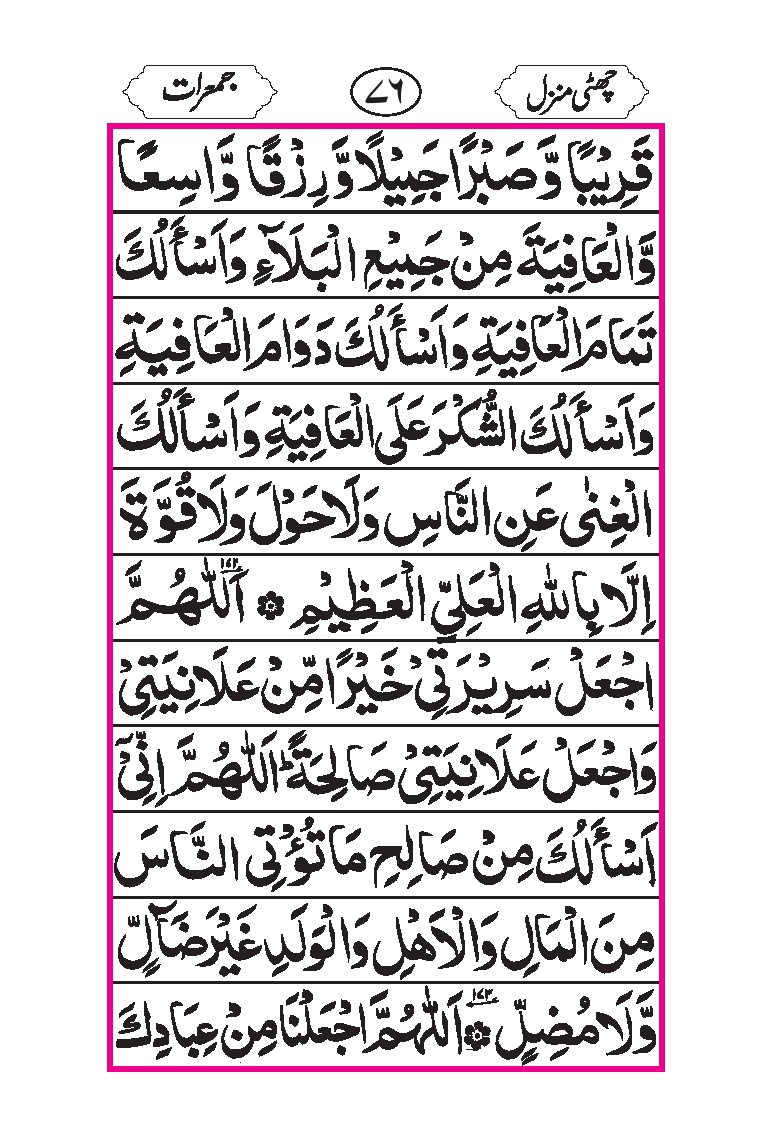 چھٹی منزل ۷۶ جمعرات
قَرِيْبًا وَّصَبْرًا جَمِيْلًا وَّرِزْقًا وَّاسِعًا
وَّالْعَافِيَةَ مِنْ جَمِيْعِ الْبَلَآءِ وَاَسْأَلُكَ
تَمَامَ الْعَافِيَةِ وَاَسْأَلُكَ دَوَامَ الْعَافِيَةِ
وَاَسْأَلُكَ الشُّكْرَ عَلَى الْعَافِيَةِ وَاَسْأَلُكَ
الْغِنٰى عَنِ النَّاسِ وَلَا حَوْلَ وَلَا قُوَّةَ
اِلَّا بِاللّٰهِ الْعَلِيِّ الْعَظِيْمِ ۞۱۷۲ اَللّٰهُمَّ
اجْعَلْ سَرِيْرَتِيْ خَيْرًا مِّنْ عَلَانِيَتِيْ
وَاجْعَلْ عَلَانِيَتِيْ صَالِحَةً ؕ اَللّٰهُمَّ اِنِّيْٓ
اَسْأَلُكَ مِنْ صَالِحِ مَا تُؤْتِي النَّاسَ
مِنَ الْمَالِ وَالْاَهْلِ وَالْوَلَدِ غَيْرَ ضَآلٍّ
وَّلَا مُضِلٍّ ۞۱۷۳ اَللّٰهُمَّ اجْعَلْنَا مِنْ عِبَادِكَ